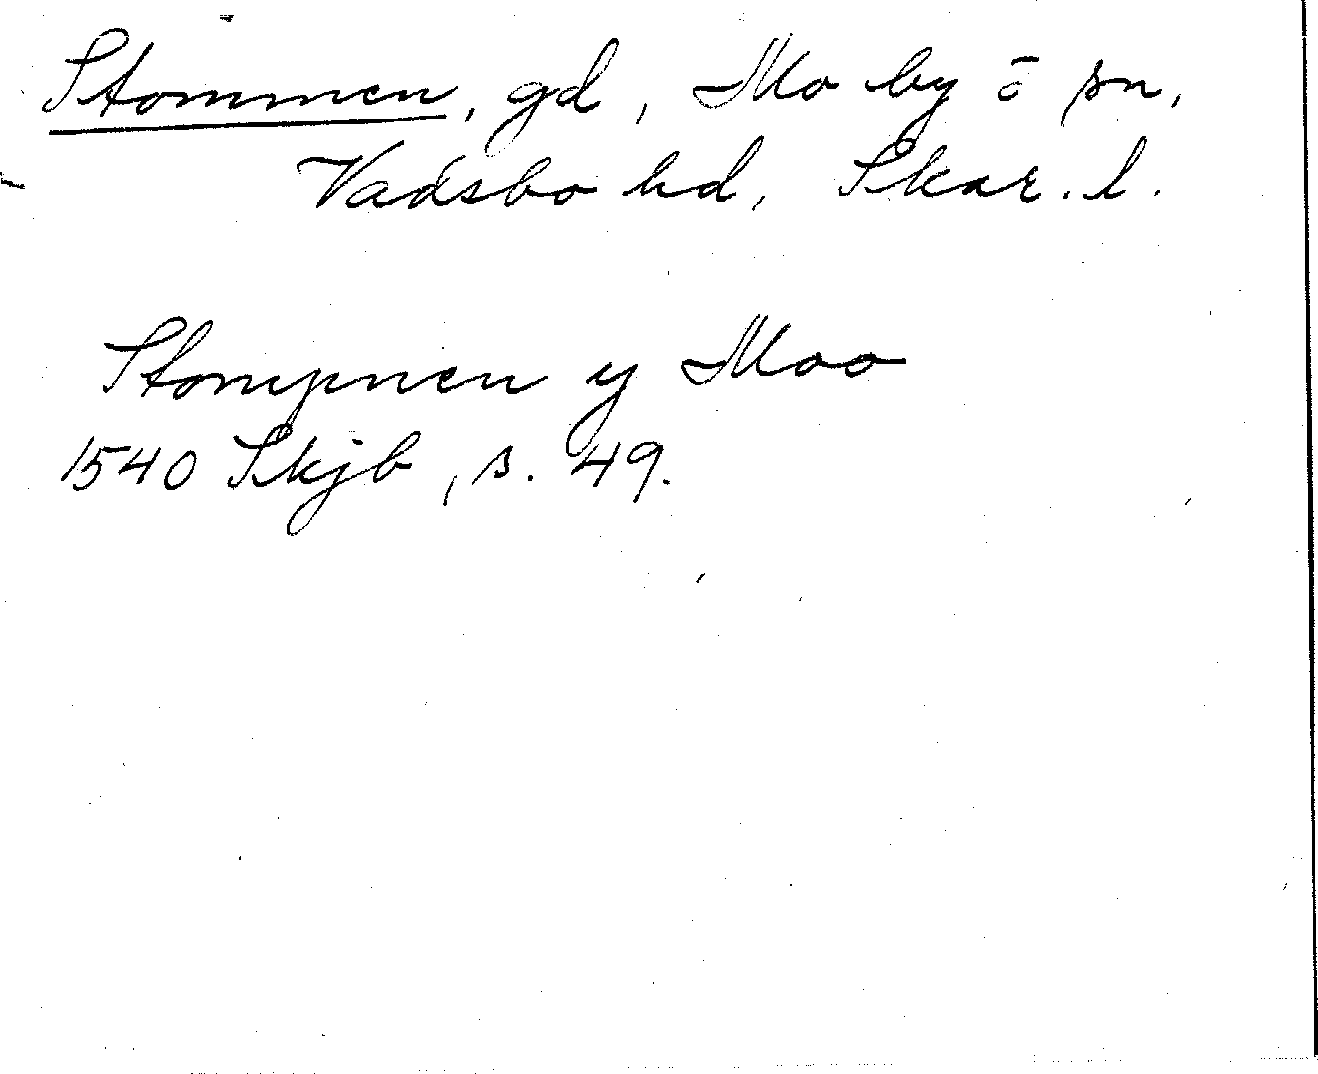 Stommen, gd, Mo by ō sn,
Vadsbo hd, Skar. l.
Stompnen y Moo
1540 Skjb, s. 49.